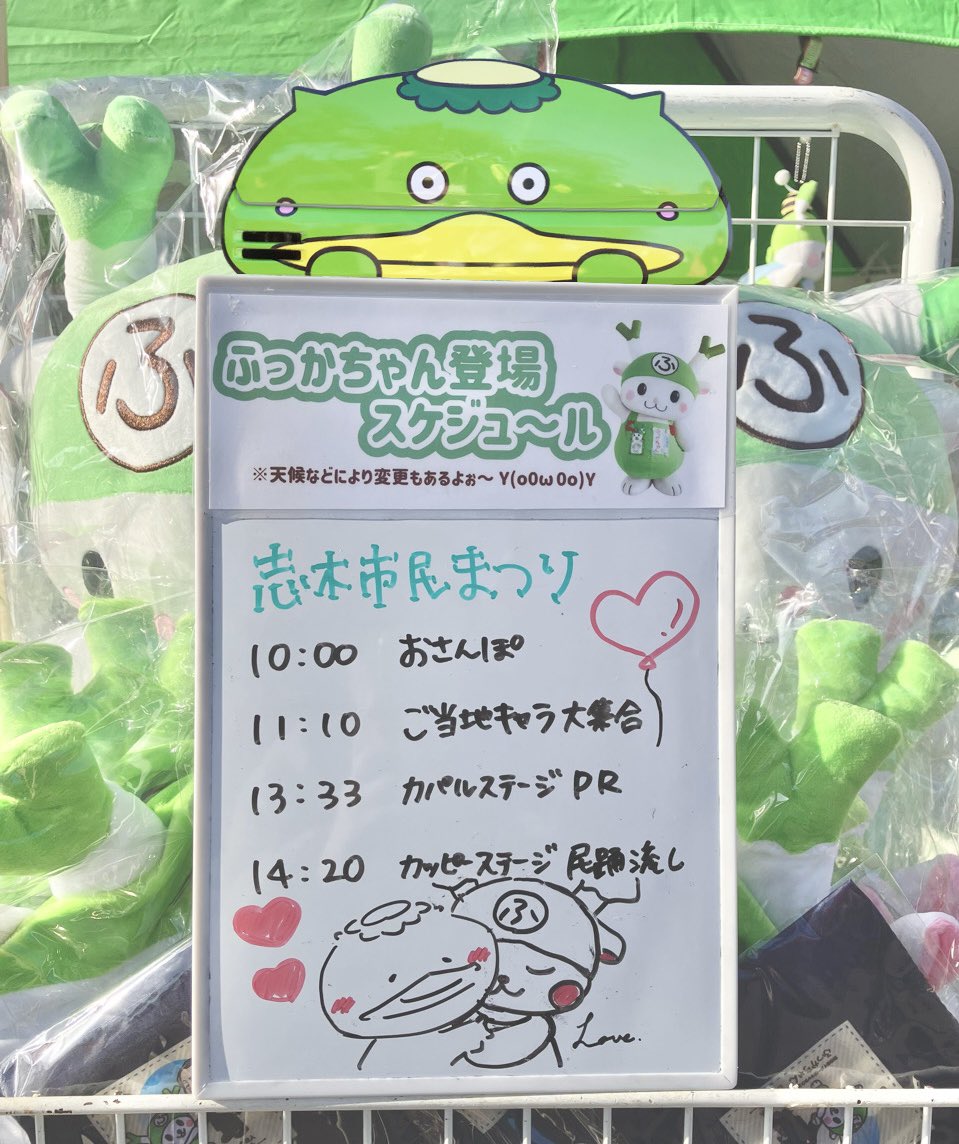 ふっかちゃん登場
スケジュ〜ル
※天候などにより変更もあるよぉ〜 Y(o0ω0o)Y
ふ
ふ
ふ
志木市民まつり
10:00 おさんぽ
11:10 ご当地キャラ大集合
13:33 カパルステージ PR
14:20 カッピーステージ 民踊流し
ふ
Love.